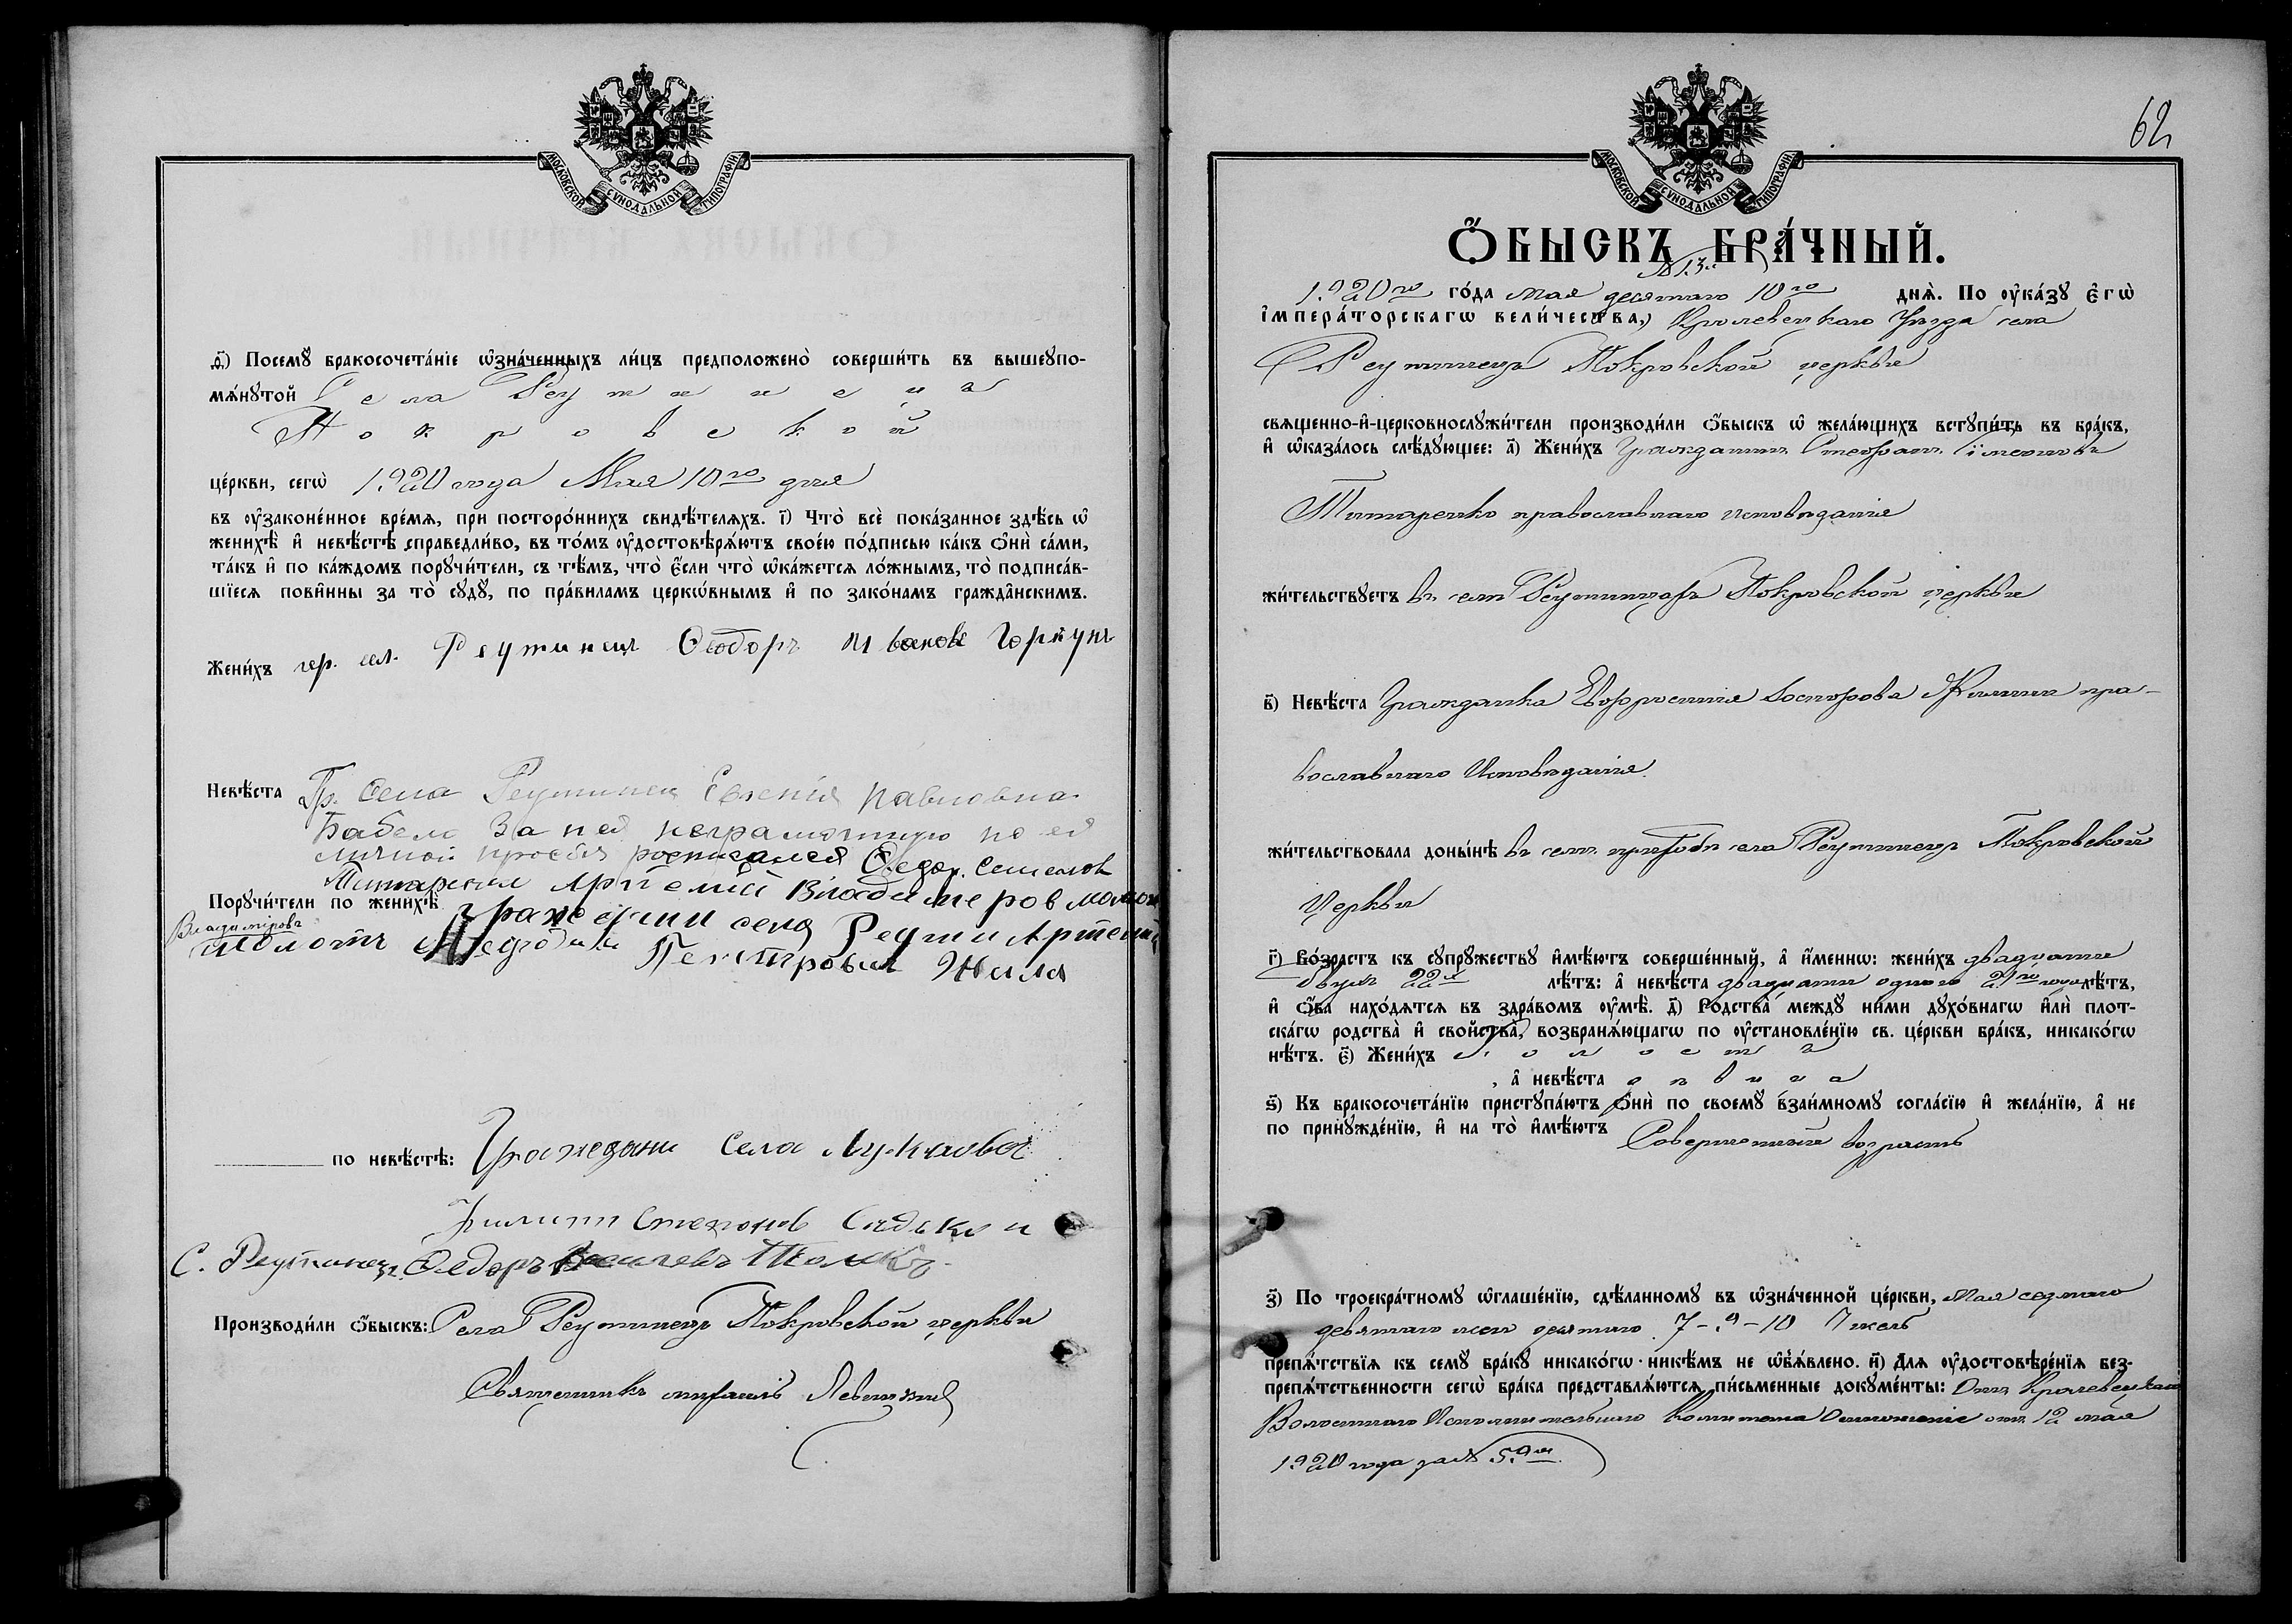 МОСКОВСКОЙ СѴНОДАЛЬНОЙ ТИПОГРАФІИ
д҃) Посемꙋ бракосочета́нїе ѡ҆зна́ченныхъ ли́цъ предположено̀ соверши́ть въ вышеꙋпо-
мѧ́нꙋтой Села Реутинецъ
Покровской
це́ркви, сегѡ̀ 1920 года Мая 10го дня
въ ᲂу҆законе́нное вре́мѧ, при посторо́ннихъ свидѣ́телѧхъ. і҃) Что̀ всѐ пока́занное здѣ́сь ѡ҆
женихѣ̀ и҆ невѣ́стѣ справедли́во, въ то́мъ ᲂу҆достовѣрѧ́ютъ свое́ю по́дписью ка́къ ѻ҆нѝ са́ми,
та́къ и҆ по ка́ждомъ порꙋчи́тели, съ тѣ́мъ, что̀ є҆́сли что̀ ѡ҆ка́жетсѧ ло́жнымъ, то̀ подписа́в-
шїесѧ пови́нны за то̀ сꙋдꙋ̀, по пра́виламъ церкѡ́внымъ и҆ по зако́намъ гражда̂нскимъ.
Жени́хъ гр. сел. Реутинецъ Ѳеодоръ Ивановъ Горкунъ
Невѣ́ста Гр. Села Реутинец Евгенія Павловна
Бабело За неё неграмотную по её
личной просьбѣ росписался Ѳедор. Семенов
Титаренко Артемій Владимеров молот
Порꙋчи́тели по женихѣ̀ граждани села Реути Артемій
Владимірова
молотъ Пентрович Жила
по невѣ́стѣ: Граждани Села Лукнова
Филипп Степанов Сидько и
С. Реутинец. Ѳедоръ Васильевъ
Производи́ли ѻ҆́быскъ: Села Реутинецъ Покровской церкви
Священникъ Левицкій
62
МОСКОВСКОЙ СѴНОДАЛЬНОЙ ТИПОГРАФІИ
Ѻ҆́БЫСКЪ БРА́ЧНЫЙ.
№ 13й
1920го го́да мая десятаго 10го днѧ̀. По ᲂу҆ка́зꙋ є҆гѡ̀
і҆мпера́торскагѡ вели́чества, Кролевецкаго Уѣзда села
Реутинецъ Покровской церкви
свѧщенно-и҆-церковнослꙋжи́тели производи́ли ѻ҆́быскъ ѡ҆ жела́ющихъ встꙋпи́ть въ бра́къ,
и҆ ѡ҆каза́лось слѣ́дꙋющее: а҃) Жени́хъ Гражданинъ Стефанъ Сімеоновъ
Титаренко православнаго исповѣданія
жи́тельствꙋетъ въ селѣ Реутинцахъ Покровской церкви
в҃) Невѣ́ста Гражданка Евфросинія Жилина пра-
вославнаго Исповѣданія.
жи́тельствовала доны́нѣ въ села Реутинецъ Покровской
Церкви
г҃) Во́зрастъ къ сꙋпрꙋ́жествꙋ и҆мѣ́ютъ соверше́нный, а҆ и҆́меннѡ: жени́хъ двадцати
двухъ 22х лѣ́тъ: а҆ невѣ́ста двадцати одного 21го лѣ́тъ,
и҆ ѻ҆́ба нахо́дѧтсѧ въ здра́вомъ ᲂу҆мѣ̀. д҃) Родства̀ междꙋ̀ ни́ми дꙋхо́внагѡ и҆лѝ плот-
ска́гѡ родства̀ и҆ свойства̀, возбранѧ́ющагѡ по ᲂу҆становле́нїю св. це́ркви бра́къ, никако́гѡ
нѣ́тъ. є҃) Жени́хъ холостъ
, а҆ невѣ́ста дѣвица
ѕ҃) Къ бракосочета́нїю пристꙋпа́ютъ ѻ҆нѝ по своемꙋ̀ взаи́мномꙋ согла́сїю и҆ жела́нїю, а҆ не
по принꙋжде́нїю, и҆ на то̀ и҆мѣ́ютъ Совершенный возрастъ
з҃) По троекра́тномꙋ ѡ҆глаше́нїю, сдѣ́ланномꙋ въ ѡ҆зна́ченной це́ркви, мая седмаго
девятаго десятаго 7-9-10 Чиселъ
препѧ́тствїѧ къ семꙋ̀ бра́кꙋ никако́гѡ никѣ́мъ не ѡ҆б̾ѧ́влено. и҃) Длѧ ᲂу҆достовѣре́нїѧ без-
препѧ́тственности сегѡ̀ бра́ка представлѧ́ютсѧ пи́сьменные докꙋме́нты: Отъ Кролевецкаго
Волостнаго Исполнительнаго Комитета Отношеніе отъ 12 мая
1920 года за № 59м